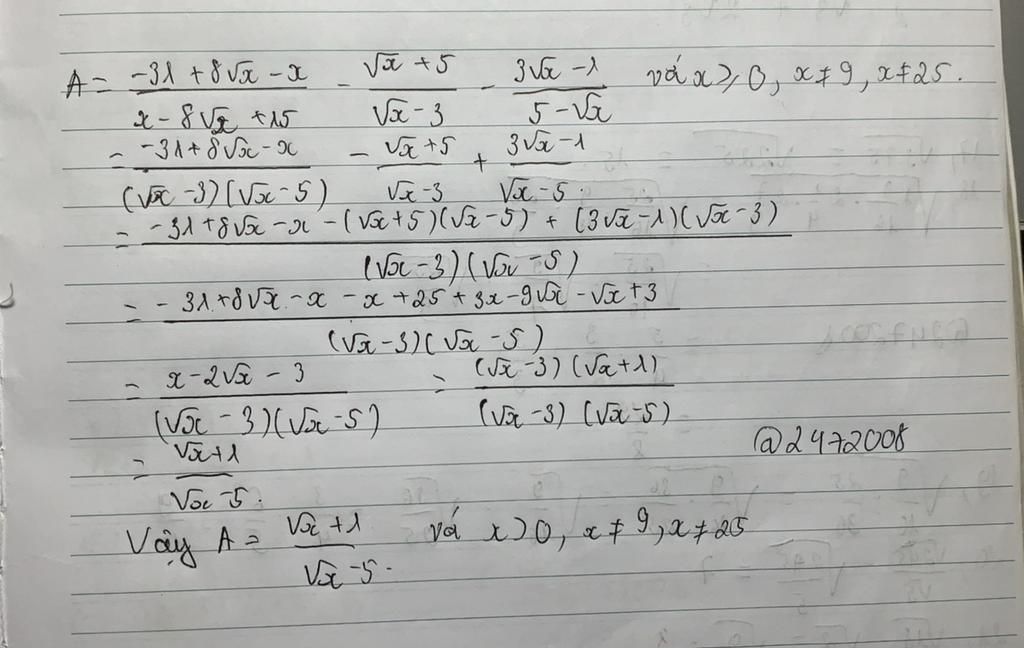 A = (-31 + 8√x - x)/(x - 8√x + 15) - (√x + 5)/(√x - 3) - (3√x - 1)/(5 - √x) với x ≥ 0, x ≠ 9, x ≠ 25.
= (-31 + 8√x - x)/((√x - 3)(√x - 5)) - (√x + 5)/(√x - 3) + (3√x - 1)/(√x - 5).
= (-31 + 8√x - x - (√x + 5)(√x - 5) + (3√x - 1)(√x - 3))/((√x - 3)(√x - 5))
= (-31 + 8√x - x - x + 25 + 3x - 9√x - √x + 3)/((√x - 3)(√x - 5))
= (x - 2√x - 3)/((√x - 3)(√x - 5)) = ((√x - 3)(√x + 1))/((√x - 3)(√x - 5))
= (√x + 1)/(√x - 5).
@2472008
Vậy A = (√x + 1)/(√x - 5). với x > 0, x ≠ 9, x ≠ 25